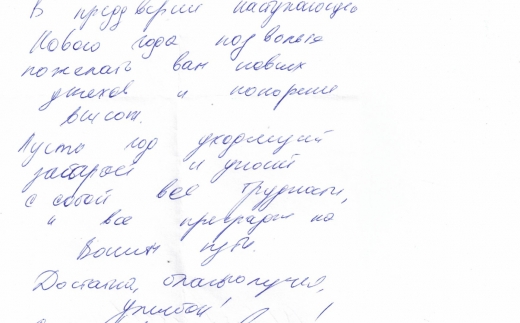 В преддверии наступающего
Нового года позвольте
пожелать вам новых
успехов и покорение
высот.
Пусть год уходящий
заберёт и унесёт
с собой все трудности,
и все преграды на
Вашем пути.
Достатка, благополучия,
улыбок!